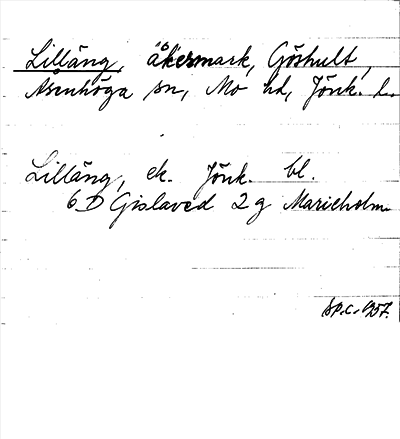 Lilläng, åkermark, Göshult,
Åsenhöga sn, Mo hd, Jönk. l.
Lilläng, ek. Jönk. bl.
6 D Gislaved 2 g Marieholm
1957.